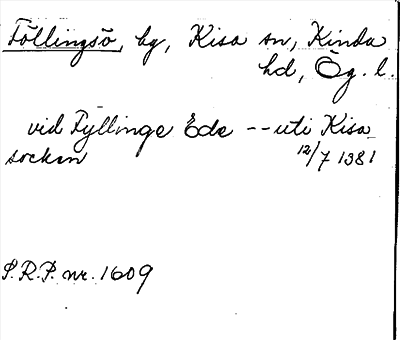 Föllingsö, by, Kisa sn, Kinda
hd, Ög. l.
vid Fyllinge Ède -- uti Kisa
sockan
12/7 1381
S.R.P. nr. 1609